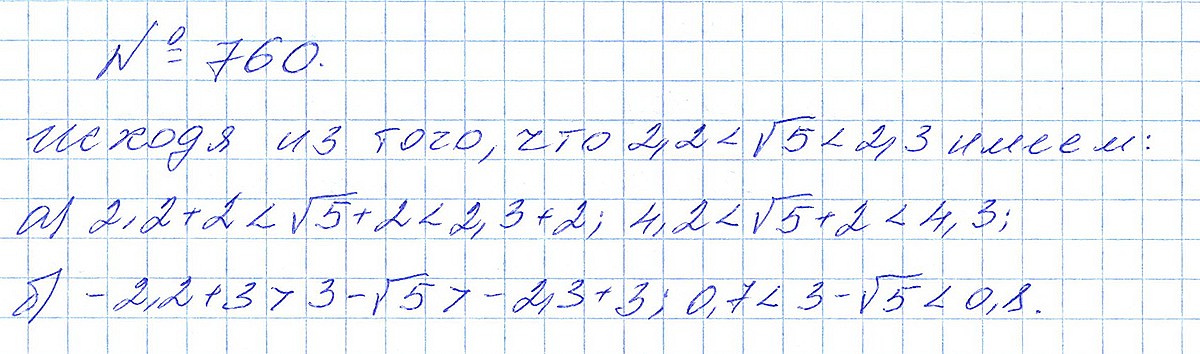 № 760.
Исходя из того, что 2,2 < √5 < 2,3 имеем:
а) 2,2 + 2 < √5 + 2 < 2,3 + 2; 4,2 < √5 + 2 < 4,3;
б) -2,2 + 3 > 3 - √5 > -2,3 + 3; 0,7 < 3 - √5 < 0,8.